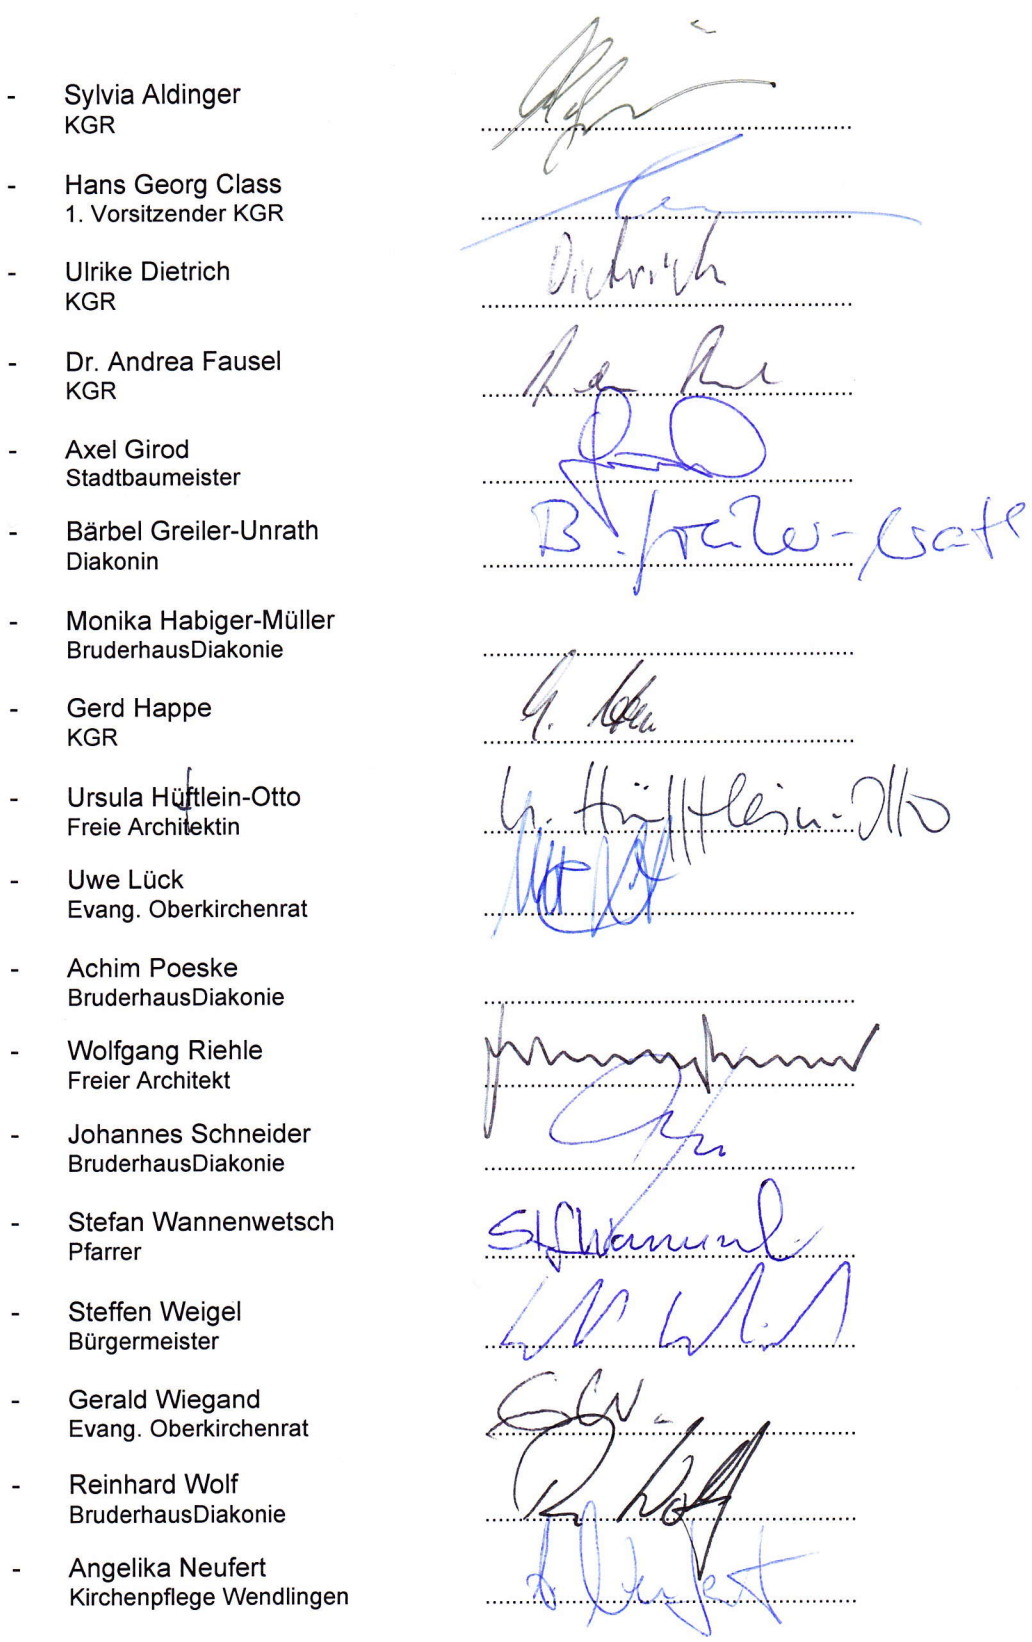 - Sylvia Aldinger
KGR
- Hans Georg Class
1. Vorsitzender KGR
- Ulrike Dietrich
KGR
Dietrich
- Dr. Andrea Fausel
KGR
- Axel Girod
Stadtbaumeister
- Bärbel Greiler-Unrath
Diakonin
B. Greiler-Unrath
- Monika Habiger-Müller
BruderhausDiakonie
- Gerd Happe
KGR
- Ursula Hüftlein-Otto
Freie Architektin
U. Hüfftlein-Otto
- Uwe Lück
Evang. Oberkirchenrat
- Achim Poeske
BruderhausDiakonie
- Wolfgang Riehle
Freier Architekt
- Johannes Schneider
BruderhausDiakonie
- Stefan Wannenwetsch
Pfarrer
- Steffen Weigel
Bürgermeister
- Gerald Wiegand
Evang. Oberkirchenrat
- Reinhard Wolf
BruderhausDiakonie
R. Wolf
- Angelika Neufert
Kirchenpflege Wendlingen
A. Neufert